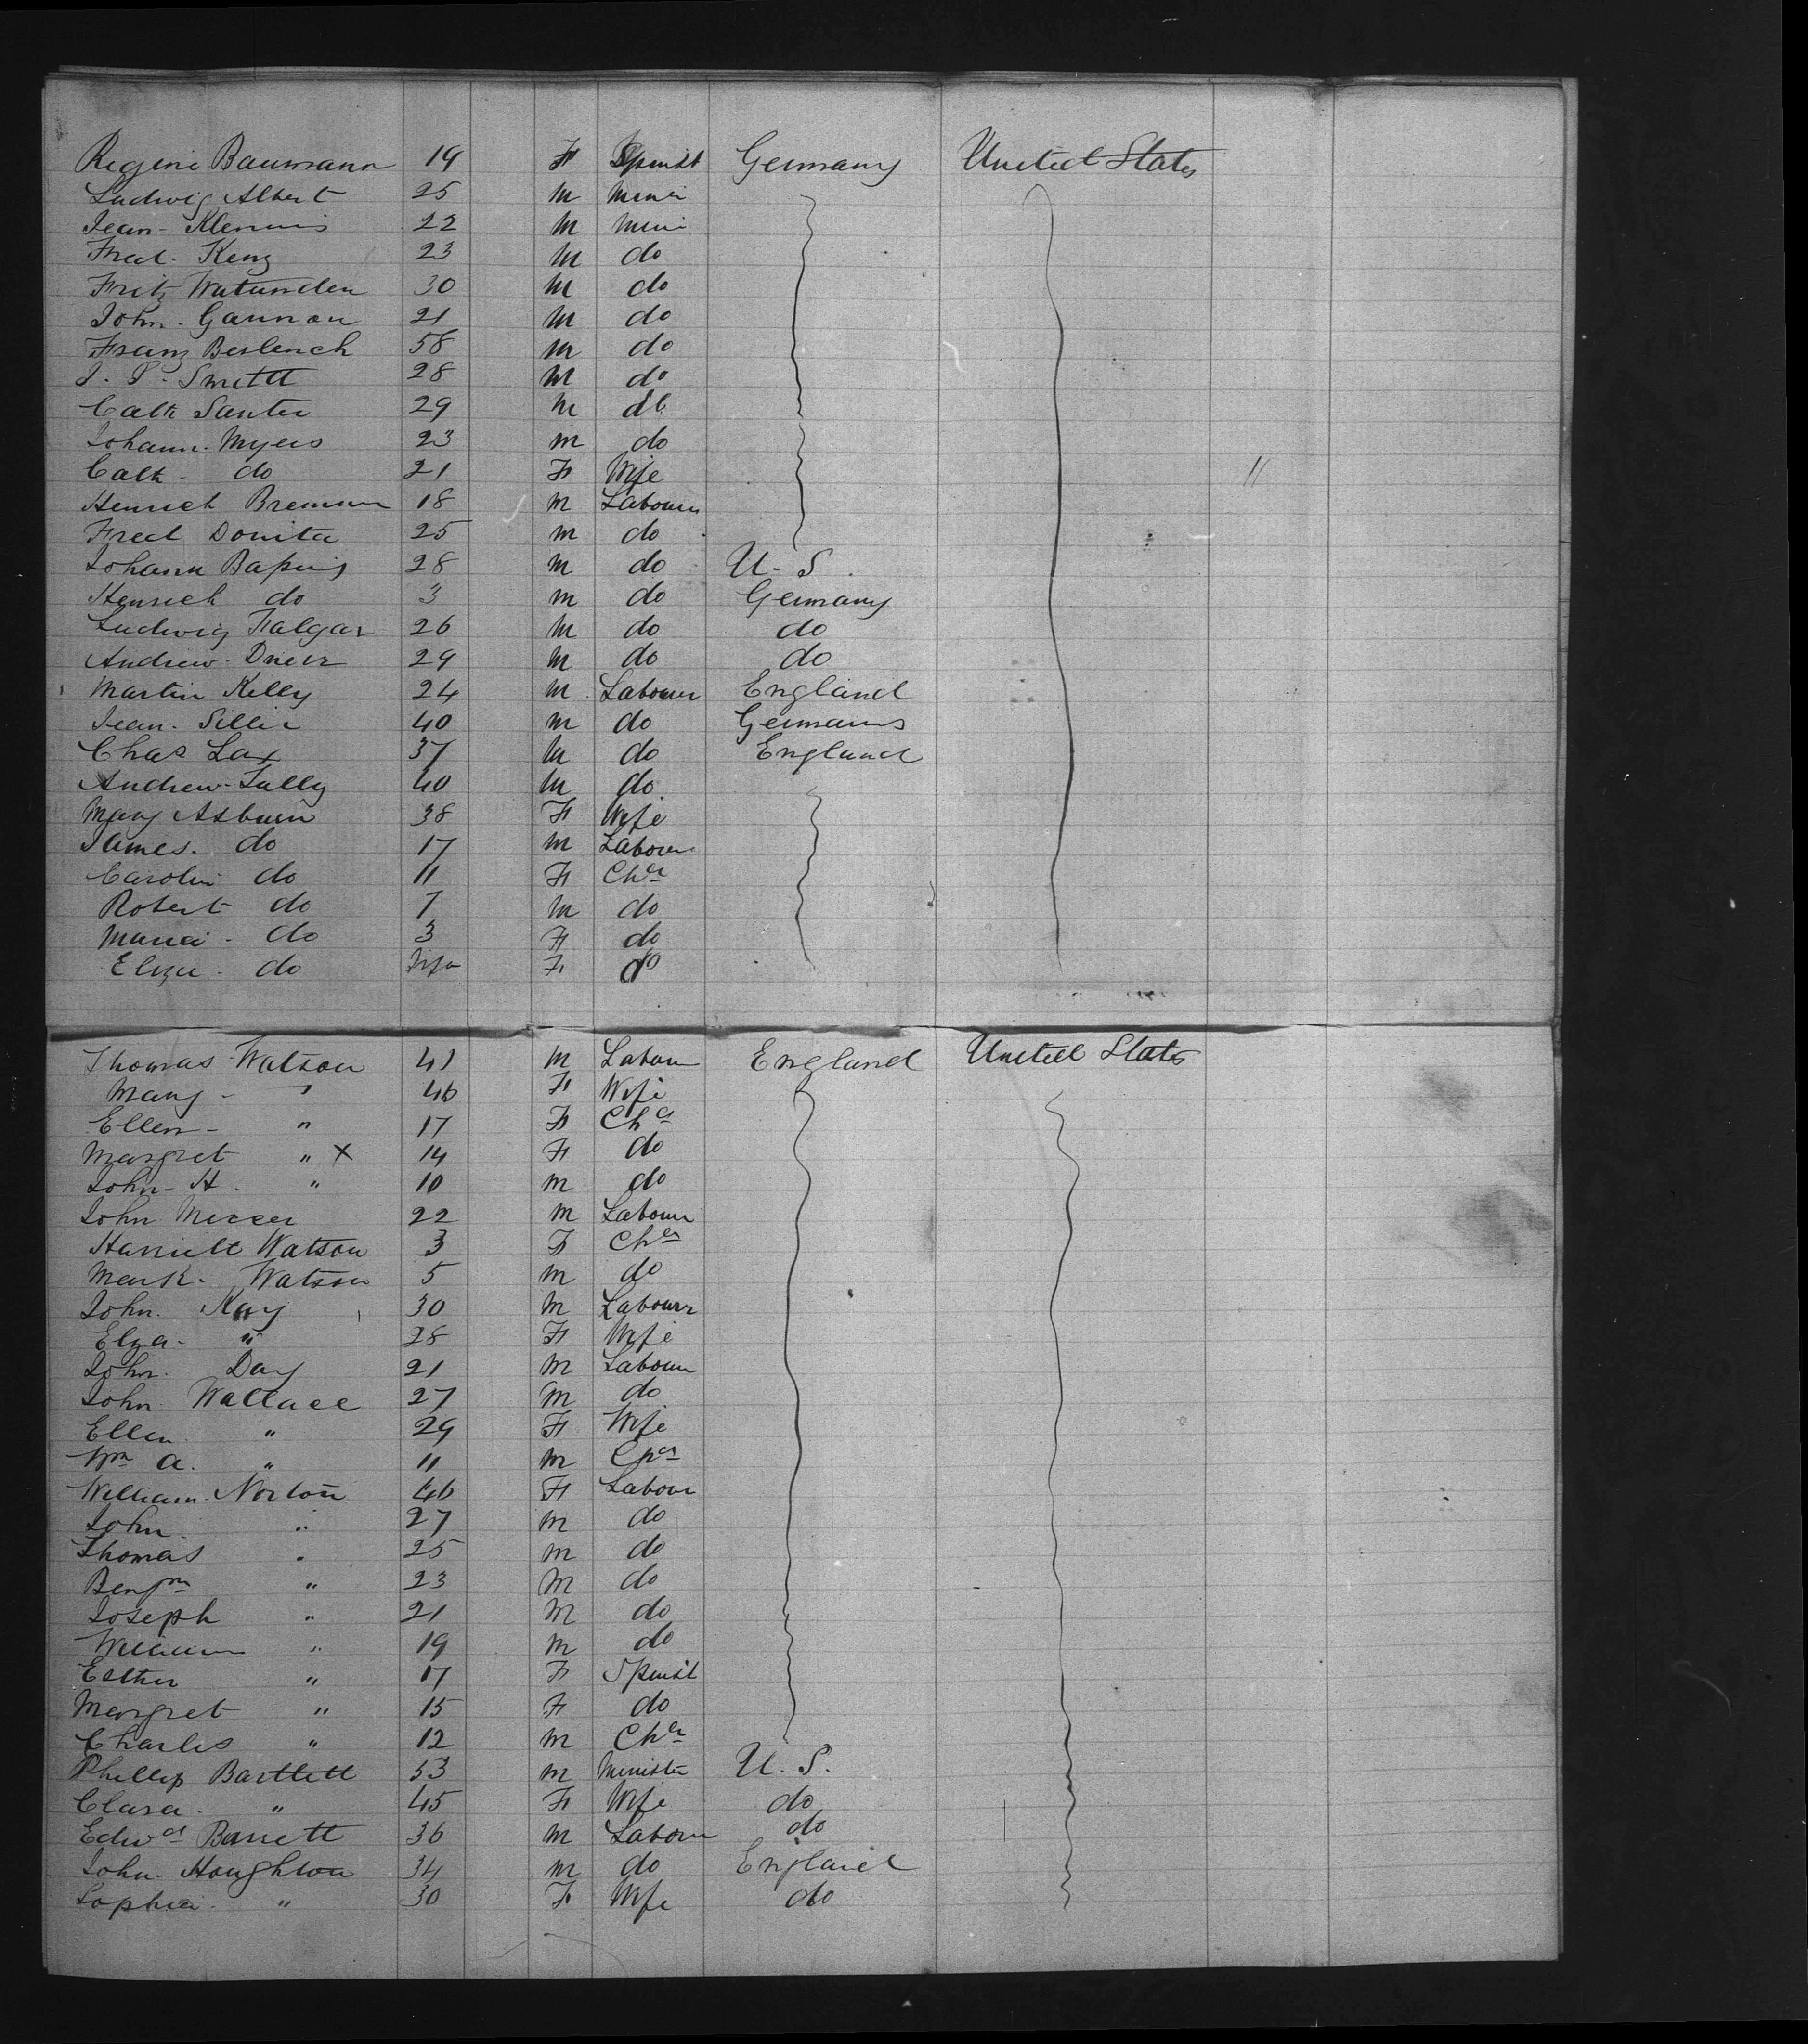 Regine Baumann 19 F Spinst Germany United States
Ludwig Albert 25 M Miner
Jean - Klemmis 22 M Mine
Fred - Kenz 23 M do
Fritz 30 M do
John - Gannon 21 M do
Franz Beslench 58 M do
J. P. Smitt 28 M do
Cath Santer 29 M do
Johann - Myers 23 M do
Cath - do 21 F Wife "
Henrich Bremmer 18 M Labourer
Fred Donita 25 M do
Johann 28 M do U - S.
Henrich do 3 M do Germany
Ludwig Falgar 26 M do do
Andrew - 29 M do do
Martin Kelly 24 M Labourer England
Jean - Siller 40 M do Germany
Chas Lax 37 M do England
Andrew - Tully 40 M do
Mary Asburn 38 F Wife
James - do 17 M Labour
Carolin do 11 F Chd
Robert do 7 M do
Maria - do 3 F do
Eliza - do Inft F do
Thomas - Watson 41 M Labour England United States
Mary - " 46 F Wife
Ellen - " 17 F Chd
Margret " X 14 F do
John - H. " 10 M do
John Mercer 22 M Labour
Harriett Watson 3 F Chd
Mark - Watson 5 M do
John. Kay 30 M Labourr
Elza - " 28 F Wife
John. Day 21 M Labour
John Wallace 27 M do
Ellen " 29 F Wife
Wm A. " 11 M Chd
William Norton 46 F Labour
John " 27 M do
Thomas " 25 M do
Benjm " 23 M do
Joseph " 21 M do
William " 19 M do
Esther " 17 F Spinst
Margret " 15 F do
Charles " 12 M Chd
Phillip Bartlett 53 M Minister U. S.
Clara - " 45 F Wife do
Edwd Barrett 36 M Labour do
John - Houghton 34 M do England
Sophia - " 30 F Wife do